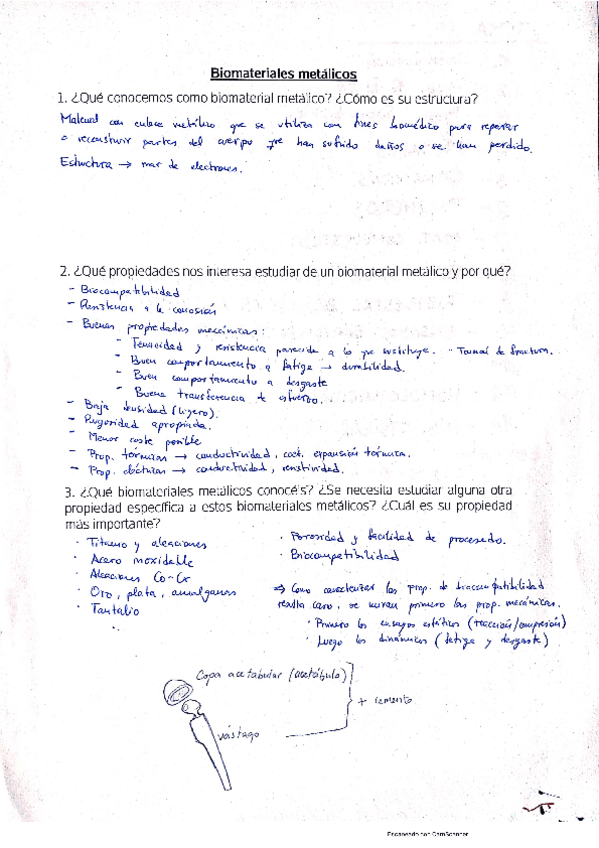 Biomateriales metálicos
1. ¿Qué conocemos como biomaterial metálico? ¿Cómo es su estructura?
Material con enlace metálico que se utiliza con fines biomédico para reparar
o reconstruir partes del cuerpo que han sufrido daños o se han perdido.
Estructura → mar de electrones.
2. ¿Qué propiedades nos interesa estudiar de un biomaterial metálico y por qué?
- Biocompatibilidad
- Resistencia a la corrosión
- Buenas propiedades mecánicas:
- Tenacidad y resistencia parecida a lo que sustituye. - Tenac. de fractura.
- Buen comportamiento a fatiga → durabilidad.
- Buen comportamiento a desgaste
- Buena transferencia de esfuerzo.
- Baja densidad (ligero).
- Rugosidad apropiada.
- Menor coste posible
- Prop. térmicas → conductividad, coef. expansión térmica.
- Prop. eléctricas → conductividad, resistividad.
3. ¿Qué biomateriales metálicos conocéis? ¿Se necesita estudiar alguna otra
propiedad específica a estos biomateriales metálicos? ¿Cuál es su propiedad
más importante?
· Titanio y aleaciones
· Acero inoxidable
· Aleaciones Co-Cr
· Oro, plata, amalgamas
· Tantalio
· Porosidad y facilidad de procesado.
· Biocompatibilidad
⇒ Como caracterizar las prop. de biocompatibilidad
resulta caro, se miran primero las prop. mecánicas.
· Primero los ensayos estáticos (tracción/compresión)
· Luego los dinámicos (fatiga y desgaste)
Copa acetabular (acetábulo)
+ cemento
vástago
Escaneado con CamScanner